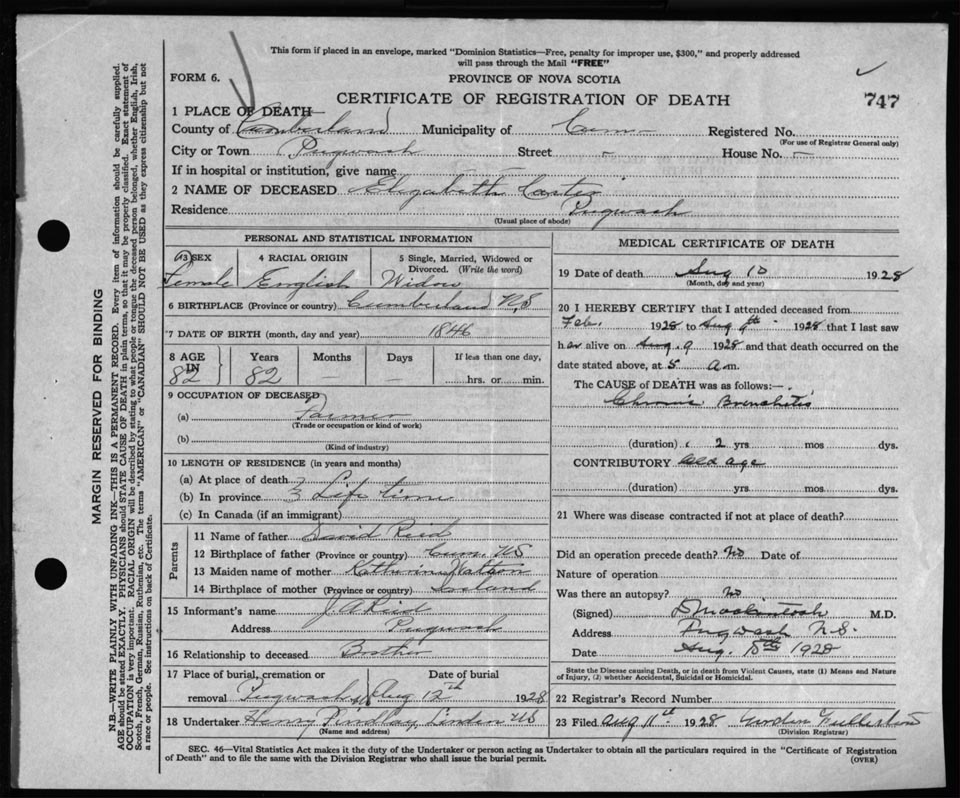 This form if placed in an envelope, marked "Dominion Statistics—Free, penalty for improper use, $300," and properly addressed
will pass through the Mail "FREE"
FORM 6.
PROVINCE OF NOVA SCOTIA
CERTIFICATE OF REGISTRATION OF DEATH
747
1 PLACE OF DEATH
County of Cumberland Municipality of Cum Registered No.
(For use of Registrar General only)
City or Town Pugwash Street - House No. -
If in hospital or institution, give name -
2 NAME OF DECEASED Elizabeth Carter
Residence Pugwash
(Usual place of abode)
MARGIN RESERVED FOR BINDING
N.B.—WRITE PLAINLY WITH UNFADING INK—THIS IS A PERMANENT RECORD. Every item of information should be carefully supplied.
AGE should be stated EXACTLY. PHYSICIANS should STATE CAUSE OF DEATH in plain terms, so that it may be properly classified. Exact statement of
OCCUPATION is very important. RACIAL ORIGIN will be described by stating to what people or tongue the deceased person belonged, whether English, Irish,
Scotch, French, German, Russian, Ruthenian, etc. The terms "AMERICAN" or "CANADIAN" SHOULD NOT BE USED as they express citizenship but not
a race or people. See instructions on back of Certificate.
PERSONAL AND STATISTICAL INFORMATION
3 SEX 4 RACIAL ORIGIN 5 Single, Married, Widowed or
Divorced. (Write the word)
Female English Widow
6 BIRTHPLACE (Province or country) Cumberland N,S
7 DATE OF BIRTH (month, day and year) 1846
8 AGE IN Years Months Days If less than one day,
82 82 - - hrs. or min.
9 OCCUPATION OF DECEASED
(a) Farmer
(Trade or occupation or kind of work)
(b)
(Kind of industry)
10 LENGTH OF RESIDENCE (in years and months)
(a) At place of death
(b) In province Life time
(c) In Canada (if an immigrant)
Parents
11 Name of father David Reid
12 Birthplace of father (Province or country) Cum. NS
13 Maiden name of mother Watson
14 Birthplace of mother (Province or country)
15 Informant's name J A Reid
Address Pugwash
16 Relationship to deceased Brother
17 Place of burial, cremation or Date of burial
removal Pugwash Aug 12th 1928
18 Undertaker Henry Findlay, Linden NS
(Name and address)
MEDICAL CERTIFICATE OF DEATH
19 Date of death Aug 10 1928
(Month, day and year)
20 I HEREBY CERTIFY that I attended deceased from
Feb. 1928 to Aug 9th 1928 that I last saw
her alive on Aug. 9 1928 and that death occurred on the
date stated above, at 5 a.m.
The CAUSE of DEATH was as follows:—
Chronic Bronchitis
(duration) 2 yrs. mos. dys.
CONTRIBUTORY old age
(duration) yrs. mos. dys.
21 Where was disease contracted if not at place of death?
Did an operation precede death? No Date of
Nature of operation
Was there an autopsy? No
(Signed) D Mackintosh M.D.
Address Pugwash N.S.
Date Aug. 10th 1928
State the Disease causing Death, or in death from Violent Causes, state (1) Means and Nature
of Injury, (2) whether Accidental, Suicidal or Homicidal.
22 Registrar's Record Number
23 Filed Aug 11th 1928 Gordon Fullerton
(Division Registrar)
SEC. 46—Vital Statistics Act makes it the duty of the Undertaker or person acting as Undertaker to obtain all the particulars required in the "Certificate of Registration
of Death" and to file the same with the Division Registrar who shall issue the burial permit.
(OVER)